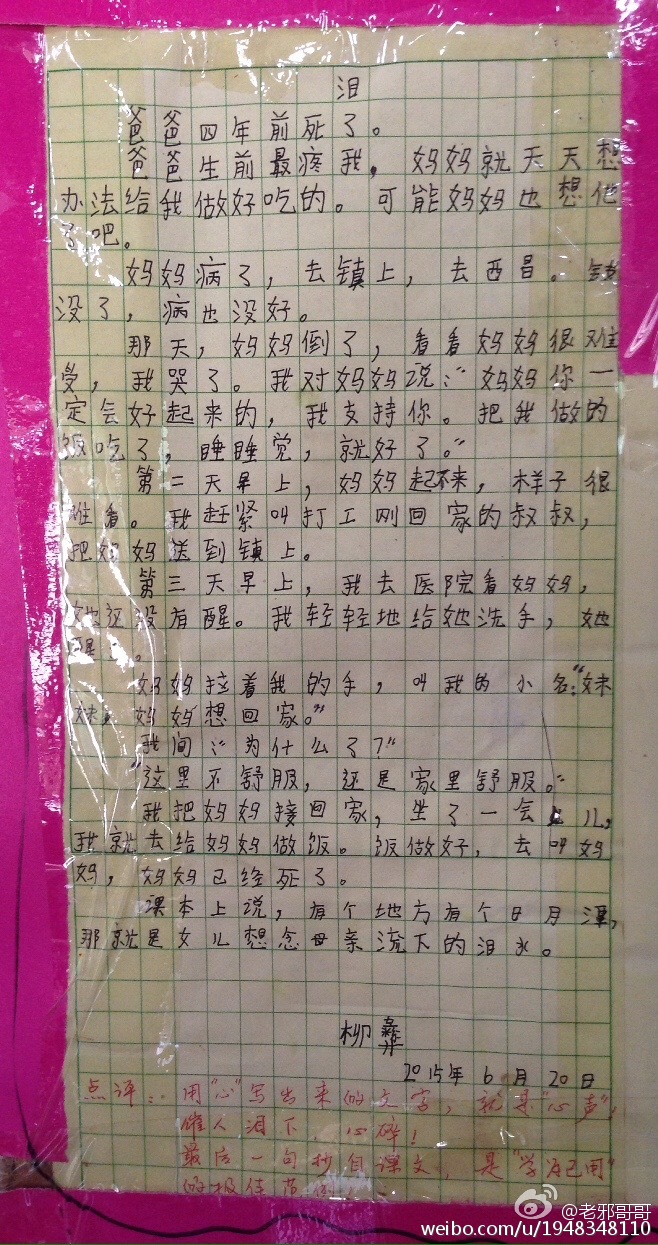 泪
爸爸四年前死了。
爸爸生前最疼我,妈妈就天天想
办法给我做好吃的。可能妈妈也想他
了吧。
妈妈病了,去镇上,去西昌。钱
没了,病也没好。
那天,妈妈倒了,看看妈妈很难
受,我哭了。我对妈妈说:“妈妈你一
定会好起来的,我支持你。把我做的
饭吃了,睡睡觉,就好了。”
第二天早上,妈妈起不来,样子很
难看。我赶紧叫打工刚回家的叔叔,
把妈妈送到镇上。
第三天早上,我去医院看妈妈,
她还没有醒。我轻轻地给她洗手,她
醒了。
妈妈拉着我的手,叫我的小名:“妹
妹,妈妈想回家。”
我问:“为什么了?”
“这里不舒服,还是家里舒服。”
我把妈妈接回家,坐了一会儿,
我就去给妈妈做饭。饭做好,去叫妈
妈,妈妈已经死了。
课本上说,有个地方有个日月潭,
那就是女儿想念母亲流下的泪水。
柳彝
2015年6月20日
点评:用“心”写出来的文字,就是“心声”,
催人泪下,心碎!
最后一句抄自课文,是“学为己用”
的极佳范例!
@老邪哥哥
weibo.com/u/1948348110